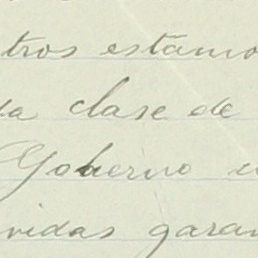 tros estamo
da clase de
Goberno
vidas garan